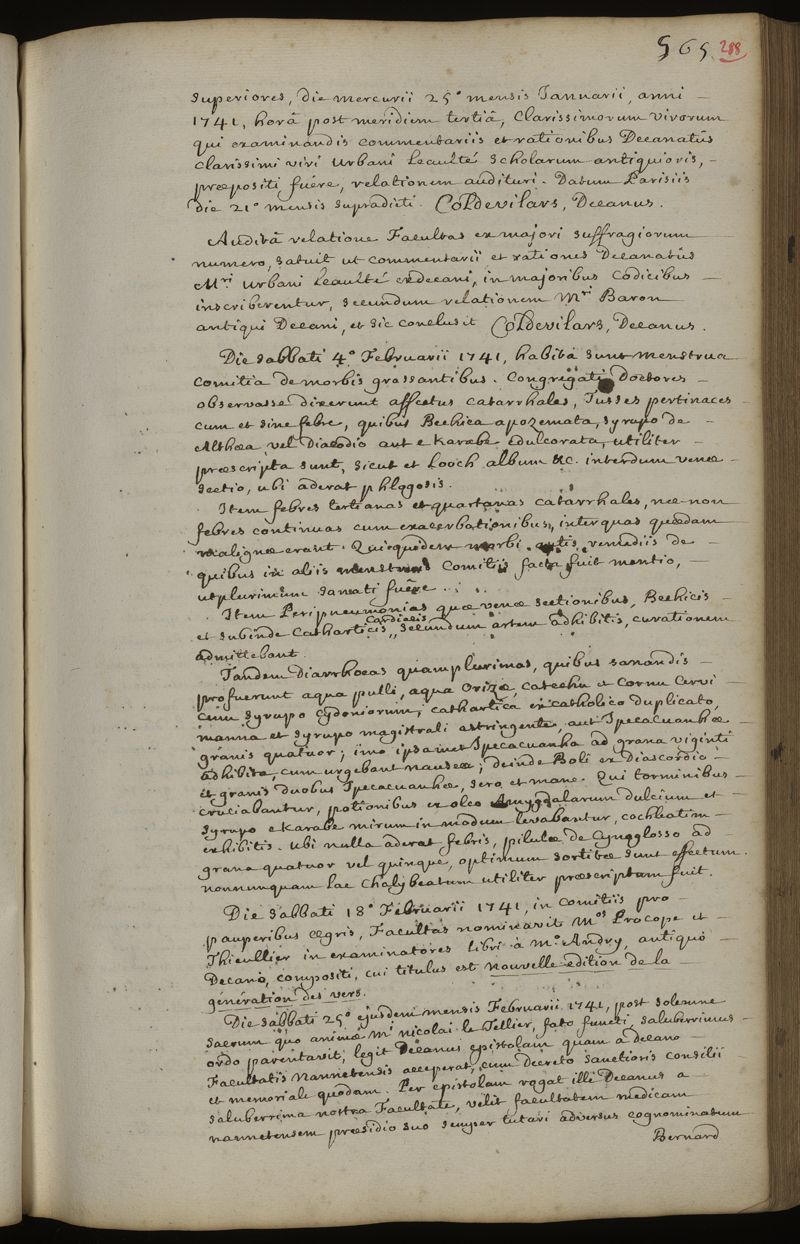 565. 288
superiores, die mercurii 25° mensis Januarii, anni
1741, horâ post meridiem tertiâ, Clarissimorum virorum
qui examinandis commentariis et rationibus Decanatûs
clarissimi viri Urbani Leaulté scholarum antiquioris,
præpositi fuêre, relationem audituri. Datum Parisiis
die 21° mensis supradicti. Col Devilars, Decanus.
Auditâ relatione Facultas ex majori suffragiorum
numero, satuit ut commentarii et rationes Decanatûs
M.ri Urbani Leaulté exdecani, in majoribus Codicibus
inscriberentur, secundum relationem M.ri Baron
antiqui Decani, et sic conclusit Col Devilars, Decanus.
Die sabbati 4° Februarii 1741, habita sunt menstrua
Comitia de morbis grassantibus. Congregati Doctores
observasse dixerunt affectus catarrhales, Tusses pertinaces
cum et sine febre, quibus Bechica apozemata, syrupo de
Althæa vel Diacodio aut e Karabe edulcorata, utiliter
præscripta sunt, sicut et Looch album &c. interdum venæ
sectio, ubi aderat phlogosis.
Item febres tertianas et quartanas catarrhales, nec non
febres continuas cum exacerbationibus, inter quas quædam
malignæ erant. Quicquidem morbi remediis de
quibus in aliis menstruis Comitiis facta fuit mentio,
utplurimùm sanati fuêre.
Item Peripneumonias quæ venæ sectionibus, Bechicis
cardiacis
et subinde Catharticis, secundum artem adhibitis, curationem
admittebant.
Tandem Diarrhoeas quamplurimas, quibus sanandis
profuerunt aqua pulli, aqua Orizæ, catechu et Cornu Cervi
cum syrupo cydoniorum, cathartica ex catholico duplicato,
manna et syrupo magistrali astringente aut Ipecacuanhæ
granis quatuor; imo ipsamet Ipecacuanha ad grana viginti
adhibita, cum urgebant nauseæ; deinde Boli ex Diascordio
et granis duobus Ipecacuanhæ, sero et mane. Qui torminibus
cruciabantur, potionibus ex oleo Amygdalarum dulcium et
syrupo e Karabe mirum in modum levabantur, cochleatim
exhibitis. ubi nulla aderat febris, pilulæ de Cynoglosso ad
grana quatuor vel quinque, optimum sortitæ sunt effectum.
nonnunquam lac Chalybeatum utiliter præscriptum fuit.
Die sabbati 18° Februarii 1741, in Comitiis pro
pauperibus ægris, Facultas nominavit M.os Procope et
Thieullier in examinatores libri à M.o Andry, antiquo
Decano, compositi, cui titulus est nouvelle edition de la
génération des vers.
Die sabbati 25° ejusdem mensis Februarii 1741, post solemne
sacrum quo animæ M.i nicolai le Tellier, fato functi, saluberrimus
ordo parentavit, legit Decanus epistolam quam a decano
Facultatis Nannetensis acceperat, cum decreto sanctioris consilii
et memoriali quodam. Per epistolam rogat ille Decanus a
saluberrima nostra Facultate, velit facultatem medicam
nannetensem præsidio suo semper tutari adversus cognominatum
Bernard